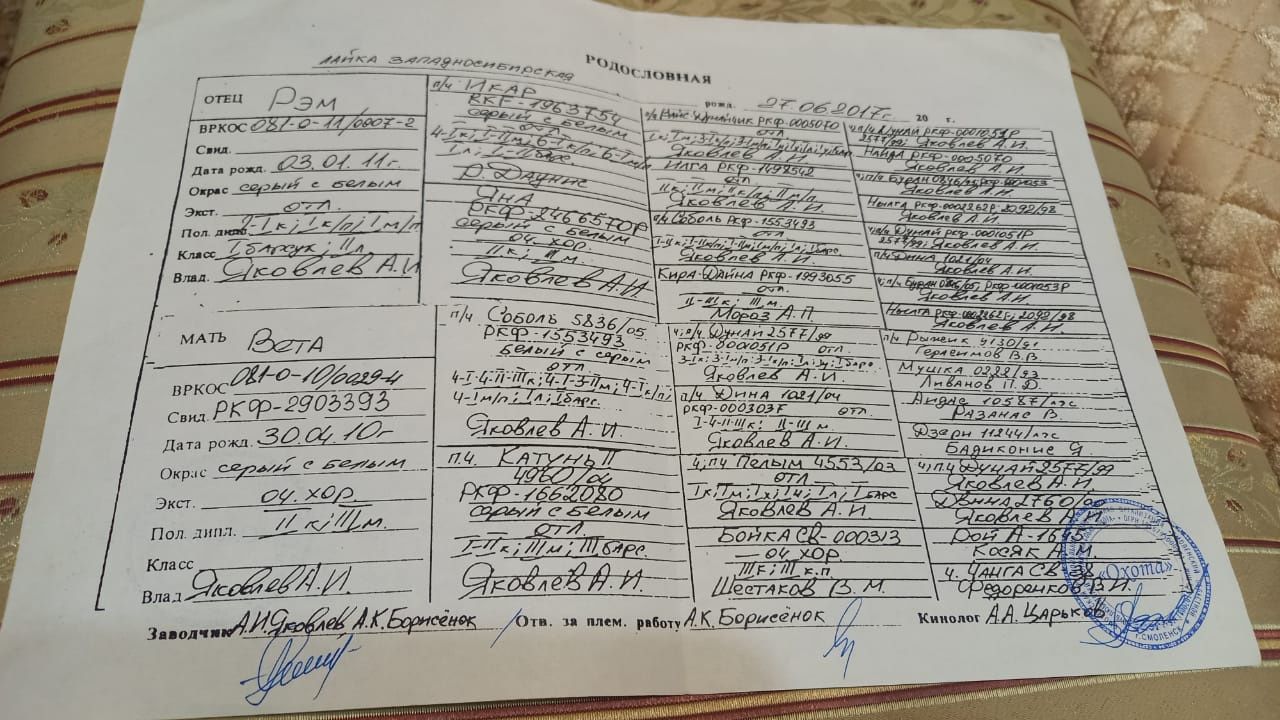 ЛАЙКА ЗАПАДНОСИБИРСКАЯ
РОДОСЛОВНАЯ
рожд. 27.06.2017г. 20 г.
ОТЕЦ Рэм
ВРКОС 081-0-11/0007-2
Свид.
Дата рожд. 03.01.11г.
Окрас серый с белым
Экст. отл.
Пол. дипл. 2-Iк; Iк/п; Iм/п
Класс Iбарсук; IIл.
Влад. Яковлев А.И
п/ч ИКАР
RKF-1963754
серый с белым
отл.
Р. Даунис
Яна
РКФ-2466570Р
серый с белым
04. хор.
IIк; IIм.
Яковлев А.И.
РКФ-0005070
отл
Яковлев А.И.
Илга РКФ-1498542
отл
IIк; IIм; IIк/п; IIм/п
Яковлев А.И.
п/ч Соболь РКФ-1553493
отл.
Яковлев А.И.
Кира-Дайна РКФ-1993055
отл.
II-IIIк; IIIм.
Мороз А.П.
ч;п/ч Дунай РКФ-0001051Р
2577/99; Яковлев А.И.
Найда РКФ-0005070
Яковлев А.И.
Яковлев А.И.
Нылга РКФ-0002262Р-2092/98
Яковлев А.И.
ч;п/ч Дунай РКФ-0001051Р
2577/99; Яковлев А.И.
п/ч Дина 1021/04
Яковлев А.И.
РКФ-0001053Р
Яковлев А.И.
Нылга РКФ-0002262Р; 2092/98
Яковлев А.И.
МАТЬ Вета
ВРКОС 081-0-10/0029-4
Свид. РКФ-2903393
Дата рожд. 30.04.10г
Окрас серый с белым
Экст. 04. хор.
Пол. дипл. IIк; IIIм.
Класс
Влад Яковлев А.И.
п/ч Соболь 5836/05
РКФ-1553493
белый с серым
отл
4-I-4-II-IIIк; 4-I-3-IIм; 4-Iк/п;
4-Iм/п; Iл; Iбарс.
Яковлев А.И.
п.ч. Катунь II
4960/04
РКФ-1662080
серый с белым
отл.
I-IIк; IIIм; IIIбарс.
Яковлев А.И.
ч; п/ч Дунай 2577/99
РКФ-0001051Р отл.
Яковлев А.И.
п/ч Дина 1021/04
РКФ-000303Г отл.
I-4-II-IIIк; II-IIIм.
Яковлев А.И.
ч; п.ч Пелым 4553/03
отл
Яковлев А.И
Бойка Св-000313
04. хор.
IIIк; IIIк.п
Шестаков В.М.
п/ч Рыжик 4130/91
Герасимов В.В.
Мушка 0222/93
Ливанов П.Д.
Айдас 10587/лзс
Разанас В.
Дзери 11244/лзс
Бадиконие Я
ч; п.ч Дунай 2577/99
Яковлев А.И.
Двина 2760/
Яковлев А.И
Рой А-16
Косяк А.М.
ч. Чанга Св-38
Федоренков В.И.
Заводчик А.И.Яковлев А.К.Борисёнок
Отв. за плем. работу А.К.Борисёнок
Кинолог А.А.Царьков
«Охота»
г.СМОЛЕНСК